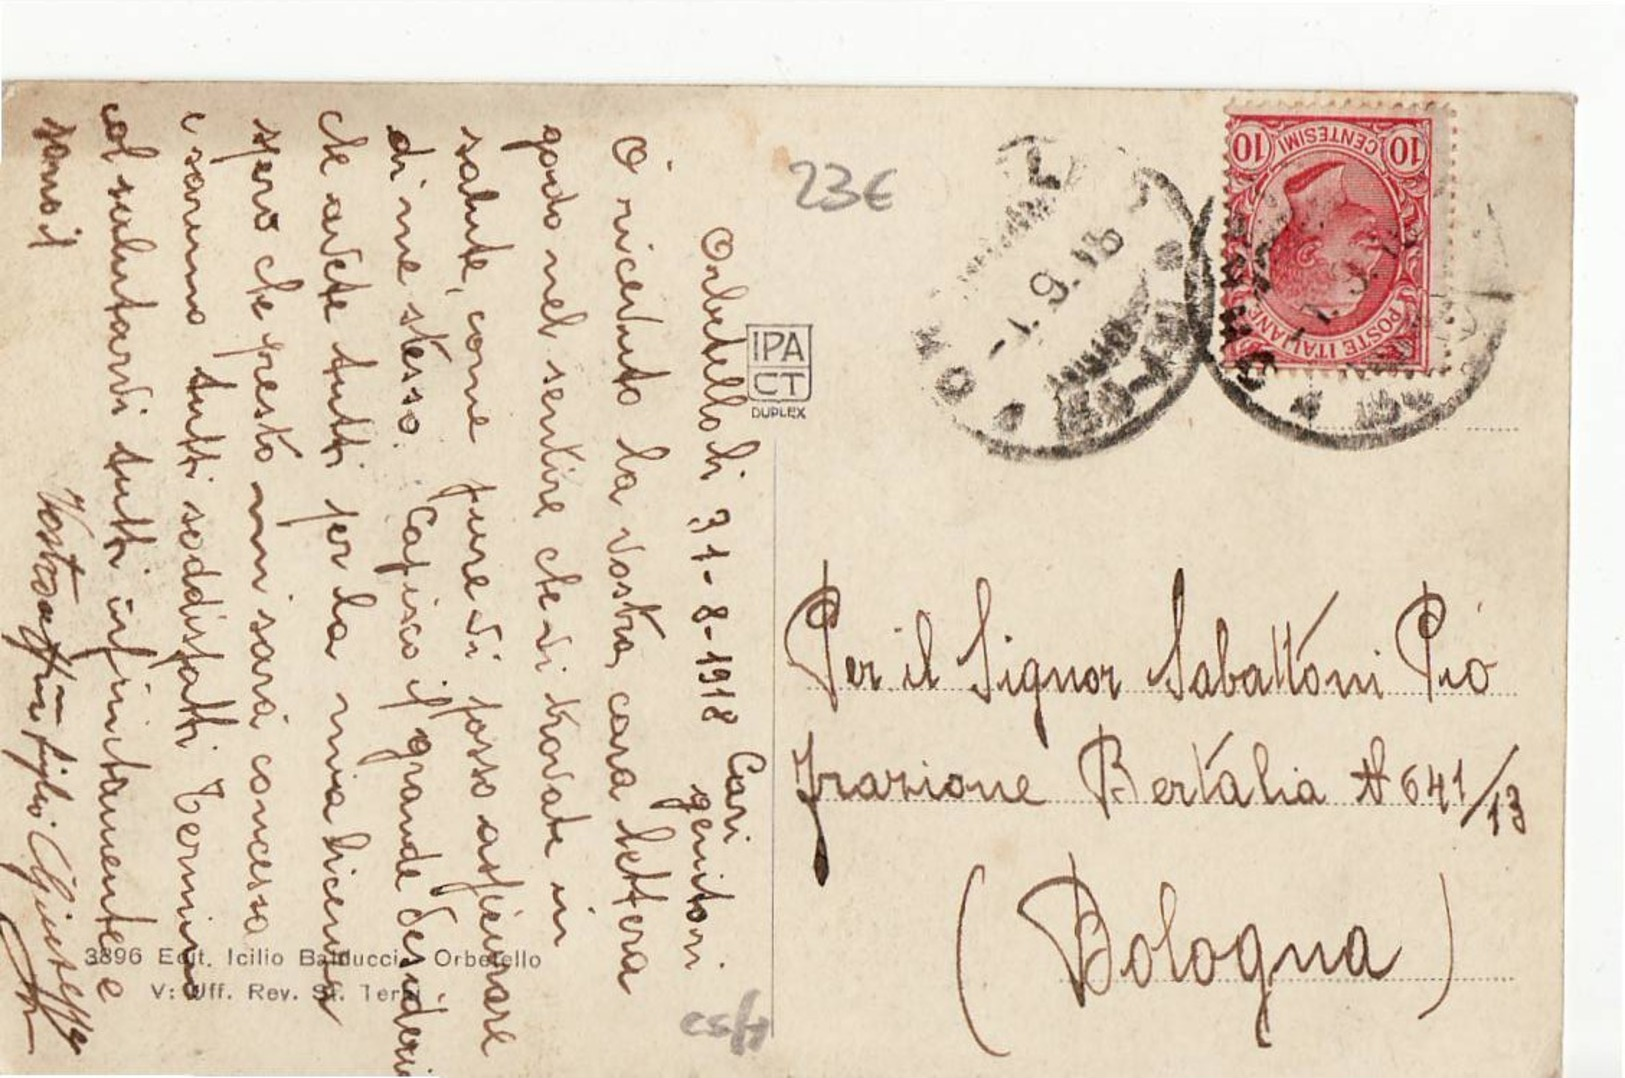 Orbetello li 31-8-1918
Cari genitori.
O ricevuto la vostra, cara lettera
godo nel sentire che vi trovate in
salute, come pure vi posso assicurare
di me stesso. Capisco il grande desiderio
che avete tutti per la mia licenza
spero che presto mi sarà concessa
e saremo tutti soddisfatti Termino
col salutarvi tutti infinitamente e
sono il
Vostro aff.mo figlio Giuseppe
3896 Edit. Icilio Balducci - Orbetello
V: Uff. Rev. St. Terni
IPA
CT
DUPLEX
23€
10
CENTESIMI
10
POSTE ITALIANE
1.9.18
Per il Signor Sabattoni Pio
frazione Bertalia N 641/13
(Bologna)